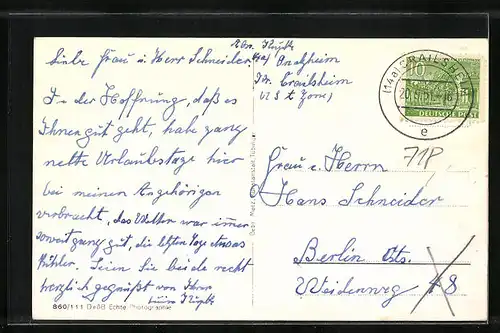 Liebe Frau u. Herr Schneider,
In der Hoffnung, daß es
Ihnen gut geht, habe ganz
nette Urlaubstage hier
bei meinen Angehörigen
verbracht, das Wetter war immer
soweit ganz gut, die letzten Tage etwas
kühler. Seien Sie beide recht
herzlich gegrüßt von Ihrer
860/111 Echte Photographie
Abs.
Crailsheim
(U S Zone)
Gebr. Metz, Tübingen
(14a) CRAILSHEIM
e
10
DEUTSCHE POST
718
Frau u. Herrn
Hans Schneider
Berlin
Weidenweg 48